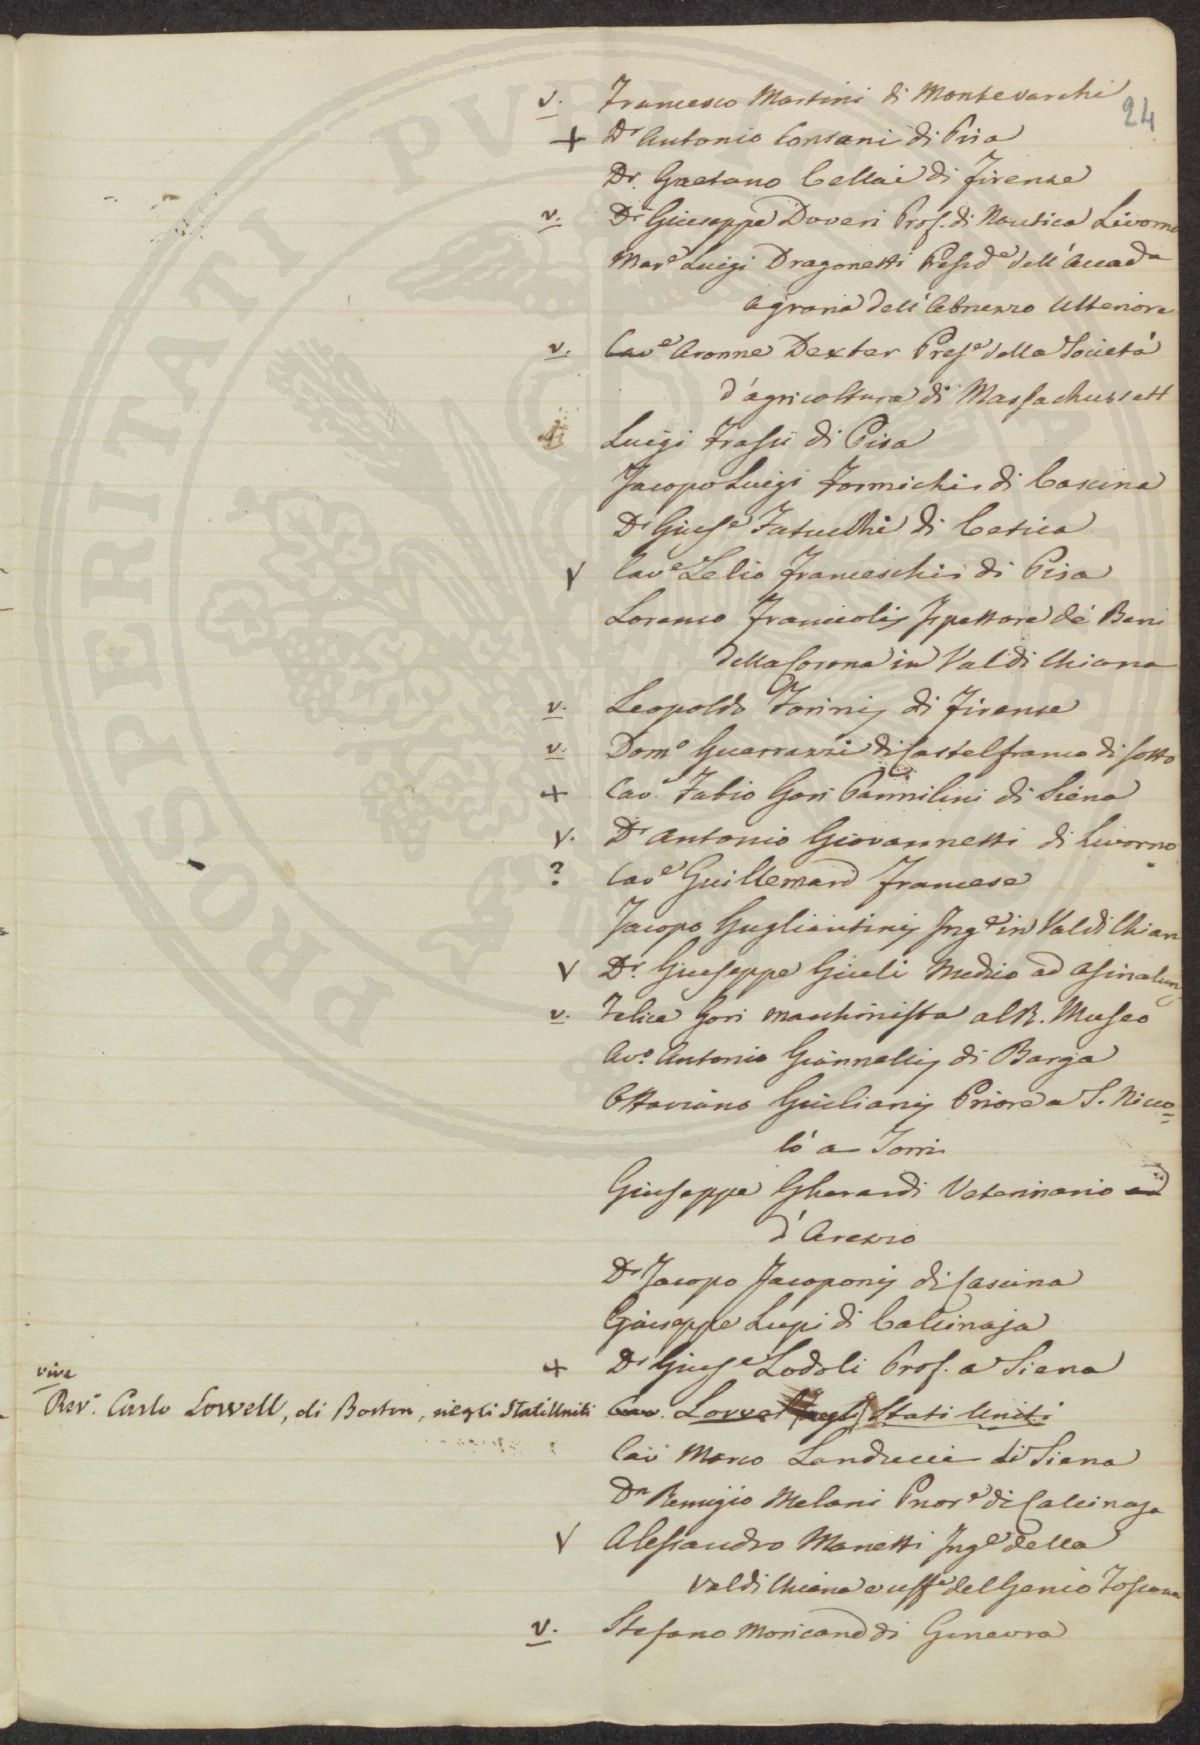 24
v. Francesco Martini di Montevarchi
+ Dr Antonio Consani di Pisa
Dr. Gaetano Cellai di Firenze
v. Dr Giuseppe Doveri Prof. di Nautica Livorno
Mare Luigi Dragonetti Preside dell'Accada
Agraria dell'Abruzzo Ulteriore
v. Cave Aronne Dexter Prese della Società
d'agricoltura di Massachussett
Luigi Frassi di Pisa
Jacopo Luigi Formichi di Cascina
Dr Giuse Fatucchi di Cetica
V Cave Lelio Franceschi di Pisa
Lorenzo Franciolij Ispettore de' Beni
della Corona in Val di Chiana
v. Leopoldo Forinij di Firenze
v. Domo Guerrazzi di Castelfranco di Sotto
+ Cav. Fabio Gori Pannilini di Siena
V. Dr Antonio Giovannetti di Livorno
? Cave Guillemard Francese
Jacopo Gugliantinij Inge in Val di Chian
V Dr. Giuseppe Giuli Medico ad Asinalun
v. Felice Gori macchinista al R. Museo
Avo. Antonio Giannellij di Barga
Ottaviano Giulianij Priore a S. Nicco=
lò a Torri
Giuseppe Gherardi Veterinario ad
d'Arezzo
Dr Jacopo Jacoponij di Cascina
Giuseppe Lupi di Calcinaja
+ Dr Giuse Lodoli Prof. a Siena
vive
Revo. Carlo Lowell, di Boston, negli Stati Uniti Cav. Lorvel negli Stati Uniti
Cav Marco Landucci di Siena
Dn Remigio Melani Priore di Calcinaja
V Alessandro Manetti Inge della
Val di Chiana e uffe del Genio Toscano
v. Stefano Moricand di Ginevra
PROSPERITATI PVBLICAE